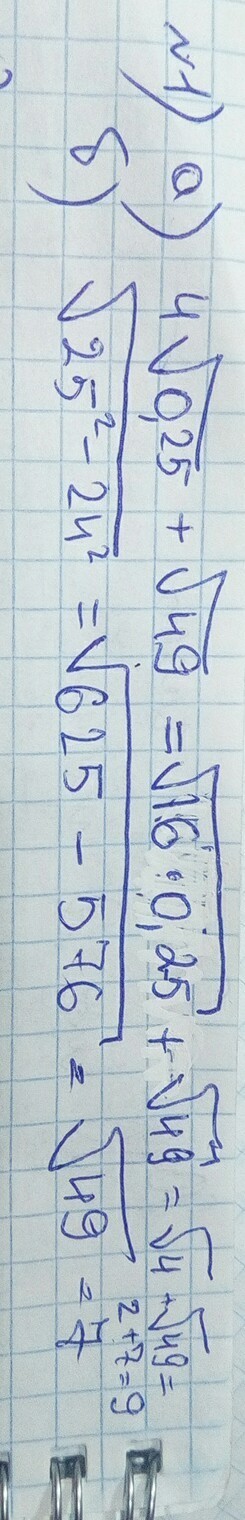 №1) а) 4√0,25 + √49 = √16·0,25 + √49 = √4 + √49 =
2+7=9
б) √25² - 24² = √625 - 576 = √49 = 7